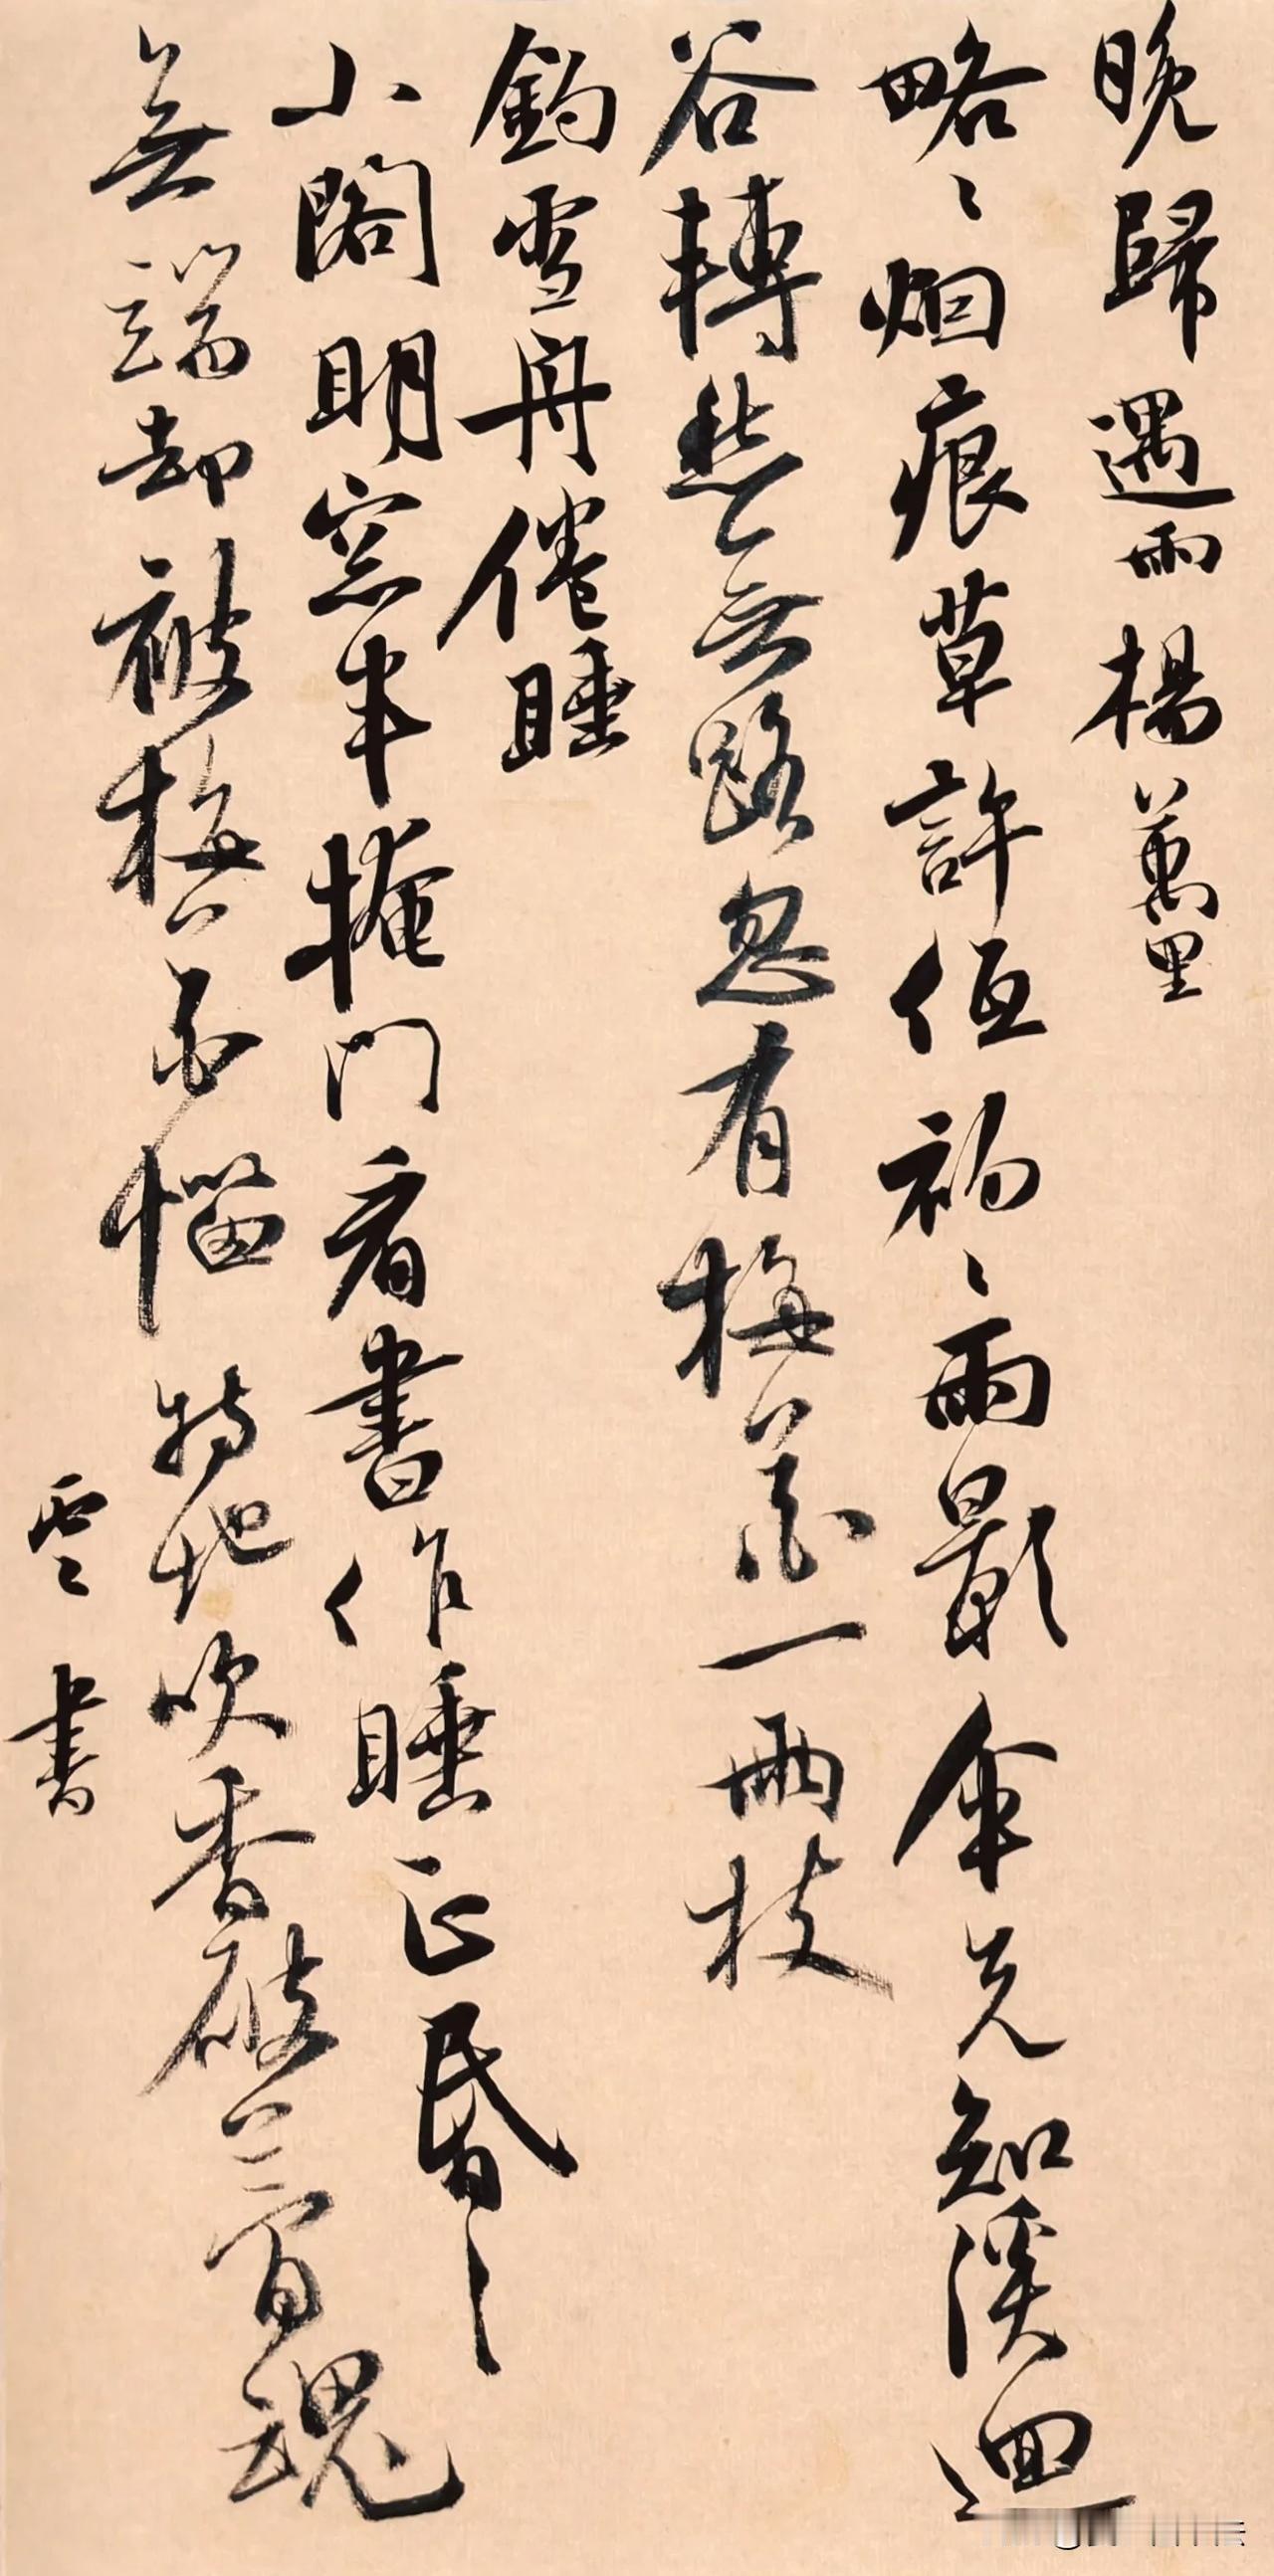 晚歸遇雨楊萬里
略〻烟痕草許低初〻雨影傘先知溪迴
谷轉愁無路忽有梅花一兩枝
釣雪舟倦睡
小閣明窓半掩門看書作睡正昏〻
無端却被梅花惱特地吹香破夢魂
雲書